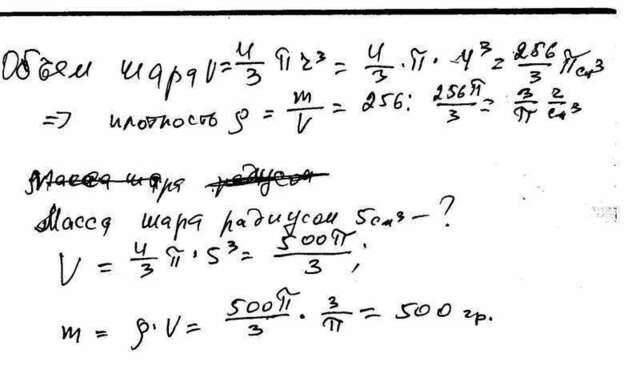 Объем шара V = 4/3 πr³ = 4/3 · π · 4³ = 256/3 π см³
=> плотность ρ = m/V = 256 : 256π/3 = 3/π г/см³
Масса шара радиусом
Масса шара радиусом 5 см³ - ?
V = 4/3 π · 5³ = 500π/3;
m = ρ · V = 500π/3 · 3/π = 500 гр.